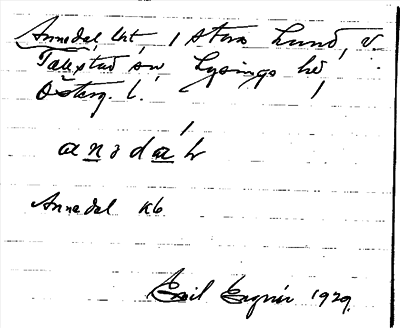 Annedal lht 1 Stora Lund, V.
Tollstad sn Lysings hd
Österg. l.
anədàl
Annedal Kb
Emil 1929.